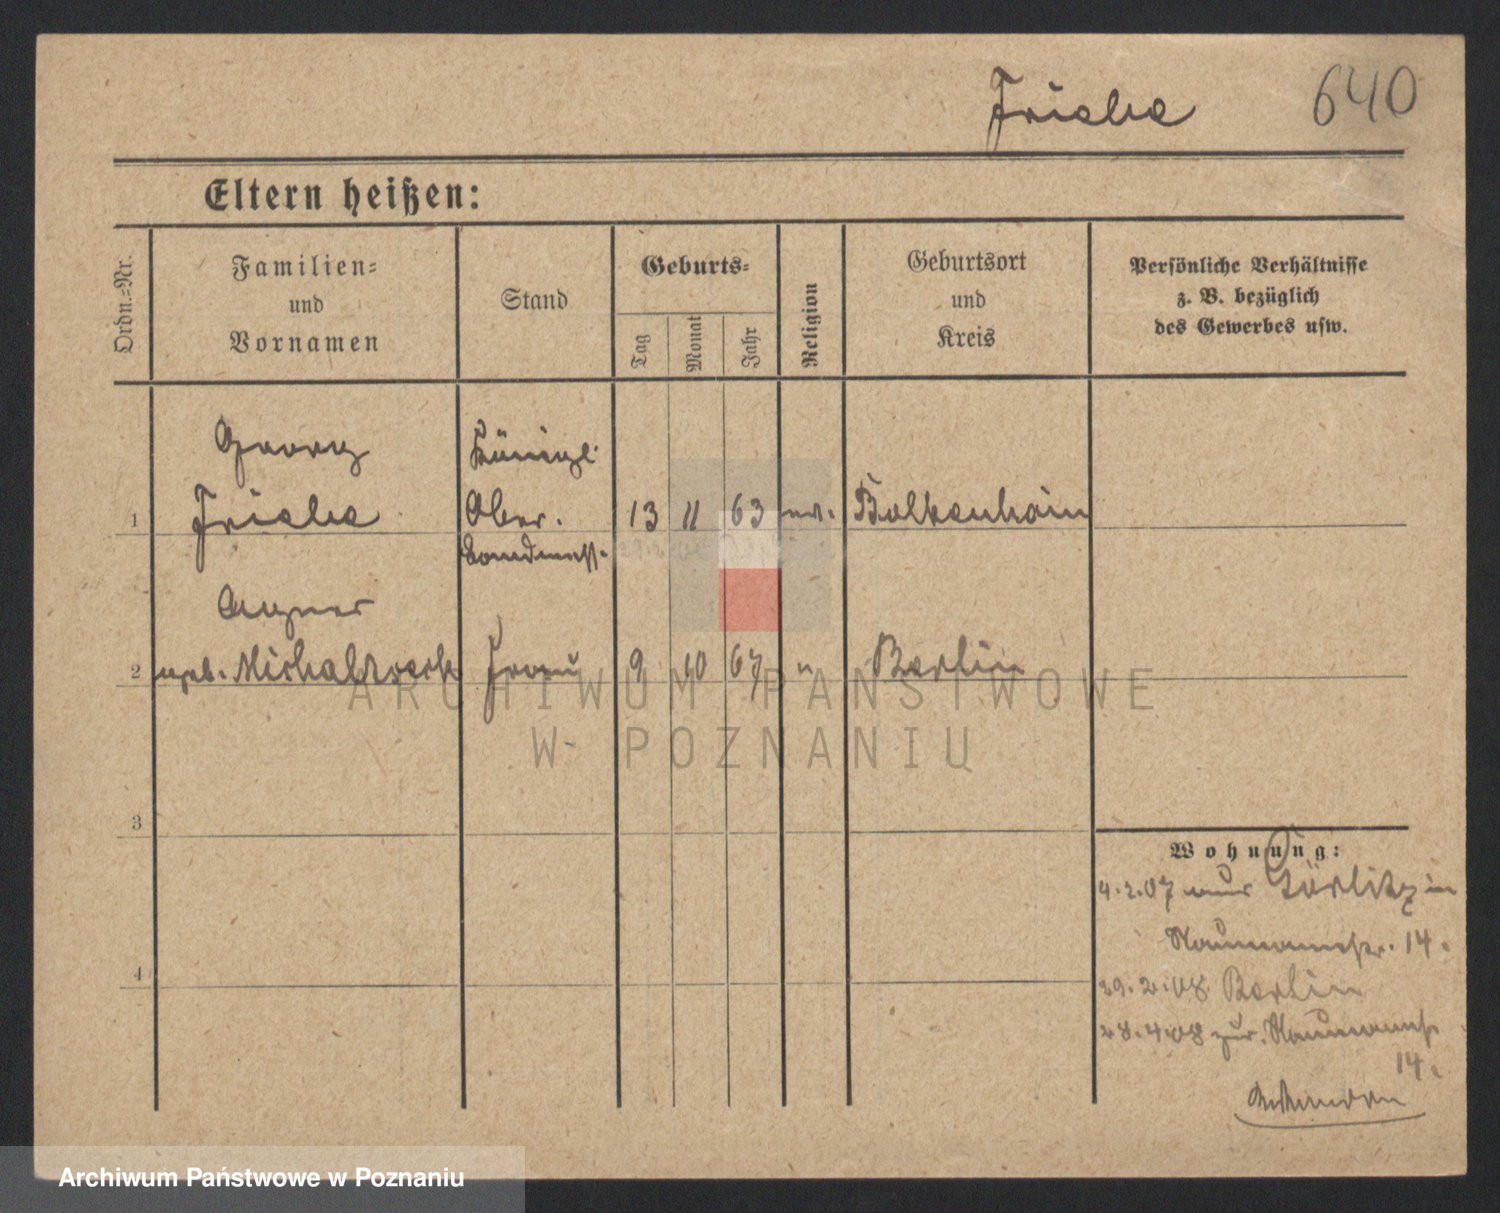 Friebe 640
Eltern heißen:
Ordn.-Nr.
Familien-
und
Vornamen
Stand
Geburts-
Tag
Monat
Jahr
Religion
Geburtsort
und
Kreis
Persönliche Verhältnisse
z. B. bezüglich
des Gewerbes usw.
Georg Königl.
1 Friebe Ober. 13 11 63 ev. Bolkenhain
Landmess.
Agnes
2 geb. Frau 9 10 67 " Berlin
ARCHIWUM PAŃSTWOWE
W POZNANIU
3
Wohnung:
4.2.07 aus Görlitz in
Naumannstr. 14.
4
29.2.08 Berlin
28.4.08 zur. Naumannst.
14.
Archiwum Państwowe w Poznaniu